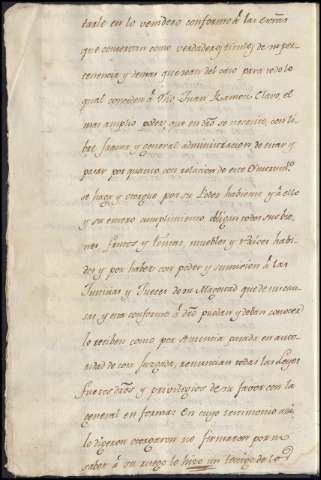 tarle en lo venidero conforme à las
que convengan como verdadero y titulo de su per
tenencia y demas que sean del caso para todo lo
qual conceden à Dho Juan Ramon Claro, el
mas amplio poder, que en dro se necesite, con li
bre, franca, y general administracion de entrar y
por quanto con relacion de este
se haga y otorgue por su Poder habieran y à ello
y su entero cumplimiento obligan todos sus bie
nes y muebles y raices habi
dos y por haber con poder y sumision à las
Justicias y Jueces de su Magestad que de sus cau
sas, y esa conforme à dro puedan y deban conocer
lo reciben como por sentencia pasada en auto
ridad de cosa Juzgada, renuncian todas las Leyes
fueros dros y privilegios de su favor con la
general en forma: En cuyo testimonio asi
lo digeron otorgaron no firmaron por no
saber à su ruego lo hizo un testigo de lo